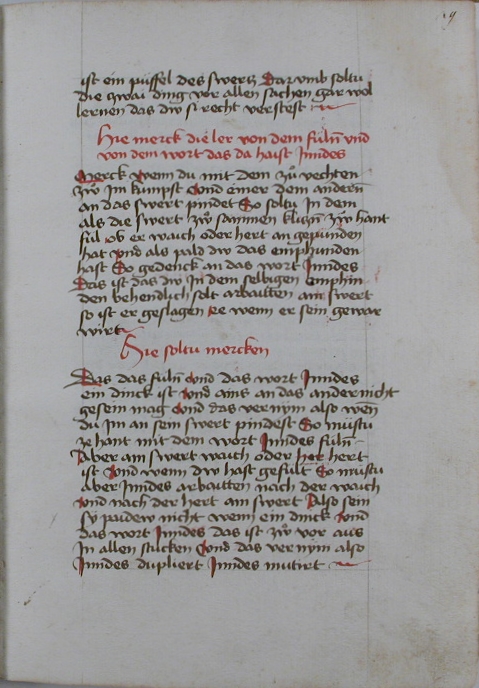 ist ein püffel des swertz Dar vmb soltu
die zwai ding vor allen sachen gar wol
lernen das dw si recht verstest
Hie merck die ler von dem fülñ vnd
von dem wort das da haist Inndes
Merck wenn du mit dem zů vechten
zẘ Im kumpst Vnd einer dem andern̄
an das swert pindet So soltu In dem
als die swert zẘ sammen klispñ zẘ hant
fül ob er waich oder hert an gepunden
hat vnd als pald dw das emphunden
hast So gedenck an das wort Inndes
Das ist das dw In dem selbigen emphin
den behendlich solt arbaitten am swert
so ist er geslagen ee wenn er sein gewar
wirt
Hie soltu mercken
Das das fülñ Vnd das wort Inndes
ein dinck ist Vnd ains an das ander nicht
gesein mag Vnd das vernym also wen̄
du Im an sein swert pindest So müstu
ze hant mit dem wort Inndes fülñ
Aber am swert waich oder her hert
ist Vnd wenn dw hast gefült So müstu
aber Inndes arbaitten nach der waich
vnd nach der hert am swert Also sein
sy paidew nicht wenn ein dinck Vnd
das wort Inndes das ist zẘ vor aus
In allen stucken Vnd das vernym also
Inndes dupliert Inndes mutirt